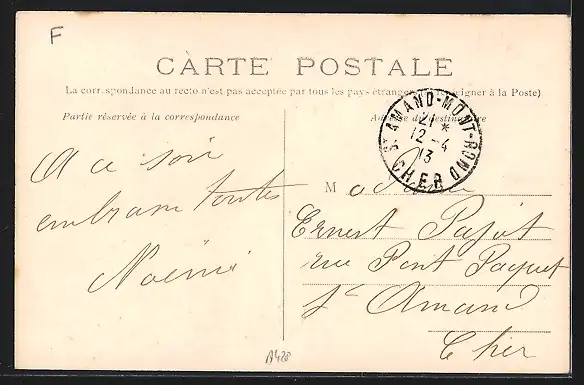 F
CARTE POSTALE
La correspondance au recto n'est pas acceptée par tous les pays étrangers (se renseigner à la Poste)
Partie réservée à la correspondance
Adresse du destinataire
St AMAND-MONT-ROND
21 *
12 - 4
13
CHER
A ce soir
embrasse toutes
Noémie
Madame
Ernest Pajot
rue Pont Paquet
St Amand
Cher
A428